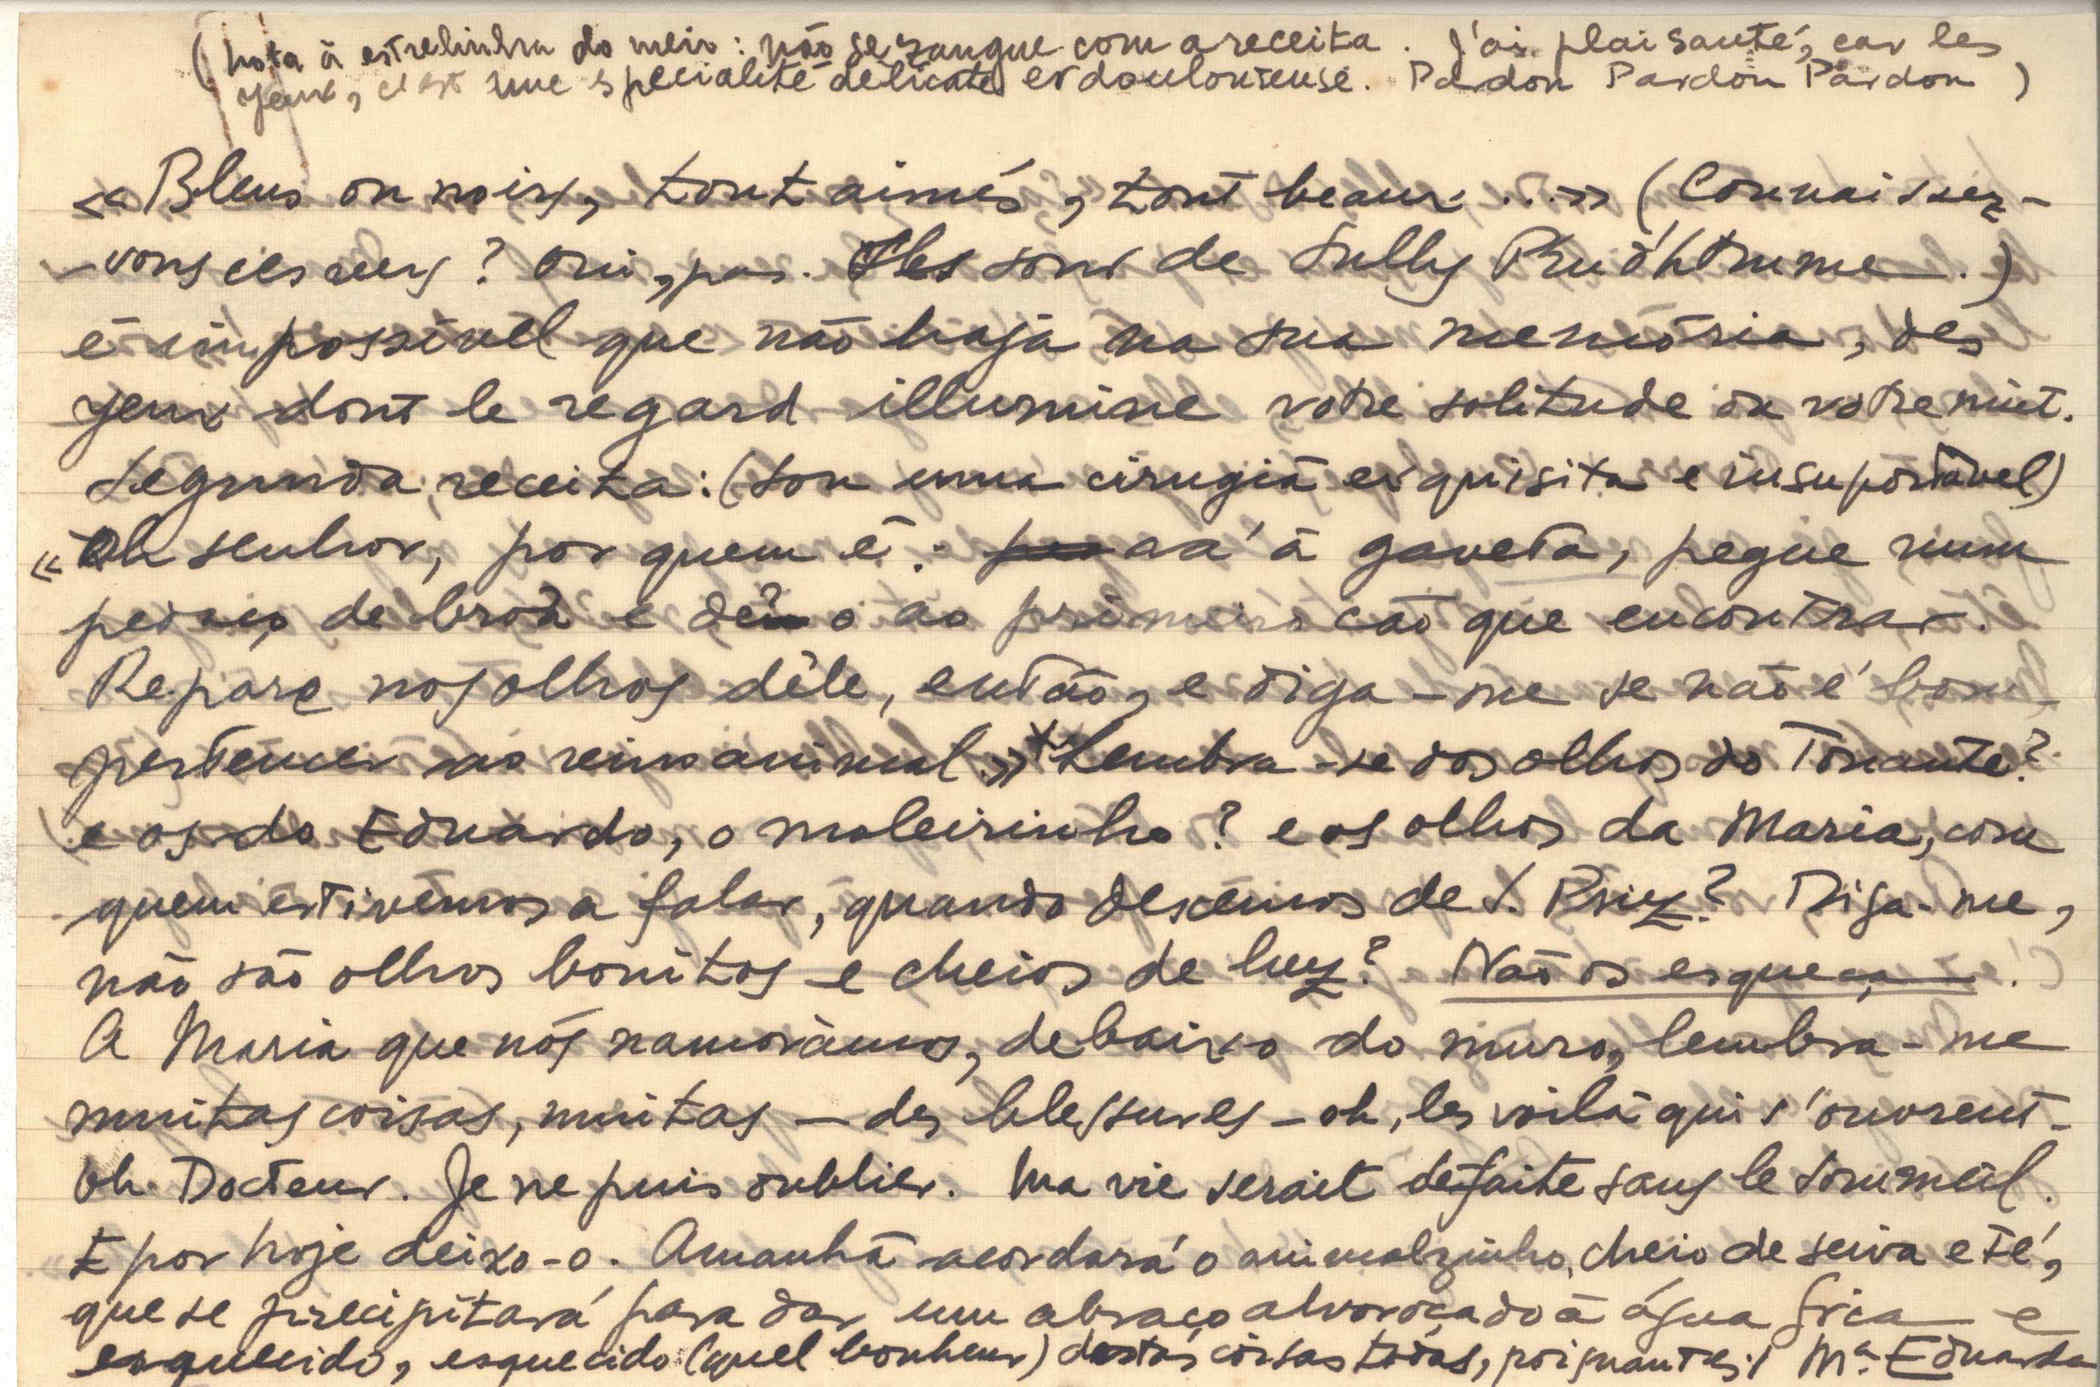 (nota à estrelinha do meio: não se zangue com a receita. J'ai plaisanté, car les
yeux, c'est une specialité délicate et douloureuse. Pardon Pardon Pardon)
«Bleus ou noirs, tout aimés, tout beaux...» (Connaissez-
-vous ces vers? Oui, pas. Ils sont de Sully Prudhomme.)
é impossível que não haja na sua memória, des
yeux dont le regard illumine votre solitude ou votre nuit.
Segunda receita: (sou uma cirugiã esquisita e insuportável)
«Oh senhor, por quem é: vá à gaveta, pegue num
pedaço de broa e dê-o ao primeiro cão que encontrar.
Repare nos olhos dêle, então, e diga-me se não é bom
pertencer ao reino animal.»* Lembra-se dos olhos do Tonante?
e os do Eduardo, o moleirinho? e os olhos da Maria, com
quem estivémos a falar, quando descemos de S. Priz? Diga-me,
não são olhos bonitos e cheios de luz? Não os esqueça.
A Maria que nós namorámos, debaixo do muro, lembra-me
muitas coisas, muitas — des blessures — oh, les voilà qui s'ouvrent-
oh Docteur. Je ne puis oublier. Ma vie serait défaite sans le sommeil.
E por hoje deixo-o. Amanhã acordará o animalzinho, cheio de seiva e fé,
que se precipitará para dar um abraço alvoroçado à água fria e
esquecido, esquecido (quel bonheur) destas coisas todas, poignantes! Mª Eduarda